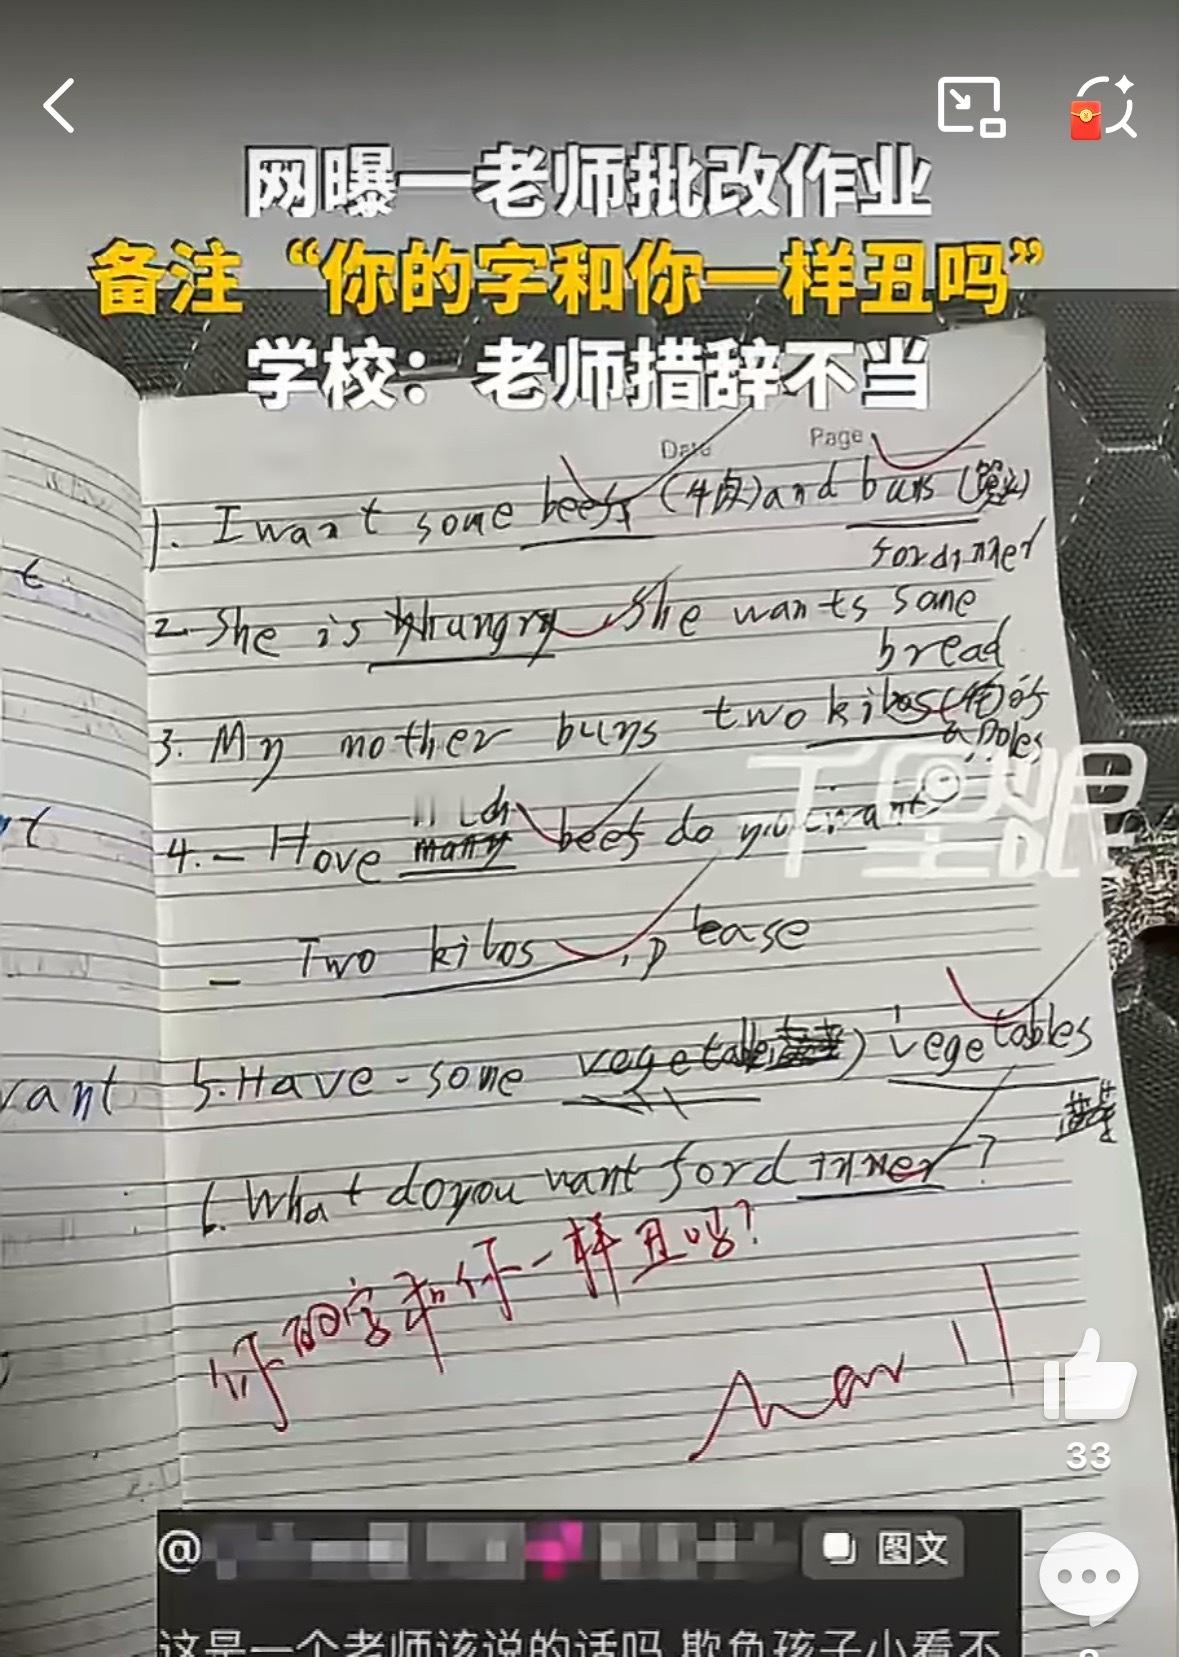 网曝一老师批改作业
备注“你的字和你一样丑吗”
学校：老师措辞不当
Date Page
1. I want some beefs (牛肉) and buns (馒头)
for dinner
2. She is hungry She wants some
bread
3. My mother buys two kilos (千克) of
apples
4. - Hove much beef do you want?
- Two kilos, please
5. Have some vegetables
vant
6. What do you want for dinner?
你的字和你一样丑吗？
Mar 11
33
@ 图文
这是一个老师该说的话吗 欺负孩子小看不